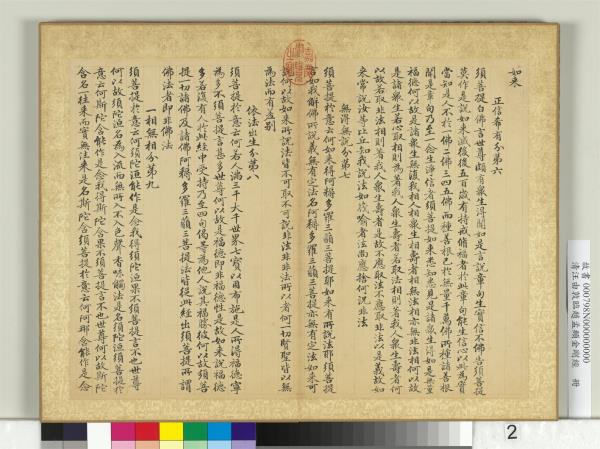 如来
正信希有分第六
須菩提白佛言世尊頗有衆生得聞如是言說章句生實信不佛告須菩提
莫作是說如来滅後後五百歲有持戒修福者於此章句能生信心以此為實
當知是人不於一佛二佛三四五佛而種善根已於無量千萬佛所種諸善根
聞是章句乃至一念生淨信者須菩提如来悉知悉見是諸衆生得如是無量
福德何以故是諸衆生無復我相人相衆生相壽者相無法相亦無非法相何以故
是諸衆生若心取相則為著我人衆生壽者若取法相則著我人衆生壽者何
以故若取非法相則著我人衆生壽者是故不應取法不應取非法以是義故如
来常說汝等比丘知我說法如筏喻者法尚應捨何況非法
無得無說分第七
須菩提於意云何如来得阿耨多羅三藐三菩提耶如来有所說法耶須菩提
言如我解佛所說義無有定法名阿耨多羅三藐三菩提亦無有定法如来可
說何以故如来所說法皆不可取不可說非法非非法所以者何一切賢聖皆以無
為法而有差别
依法出生分第八
須菩提於意云何若人滿三千大千世界七寶以用布施是人所得福德寧
為多不須菩提言甚多世尊何以故是福德即非福德性是故如来說福德
多若復有人於此經中受持乃至四句偈等為他人說其福勝彼何以故須菩
提一切諸佛及諸佛阿耨多羅三藐三菩提法皆從此經出須菩提所謂
佛法者即非佛法
一相無相分第九
須菩提於意云何須陀洹能作是念我得須陀洹果不須菩提言不也世尊
何以故須陀洹名為入流而無所入不入色聲香味觸法是名須陀洹須菩提於
意云何斯陀含能作是念我得斯陀含果不須菩提言不也世尊何以故斯陀
含名一往来而實無往来是名斯陀含須菩提於意云何阿那含能作是念
故書 000798N000000000
清汪由敦臨趙孟頫金剛經 冊
2